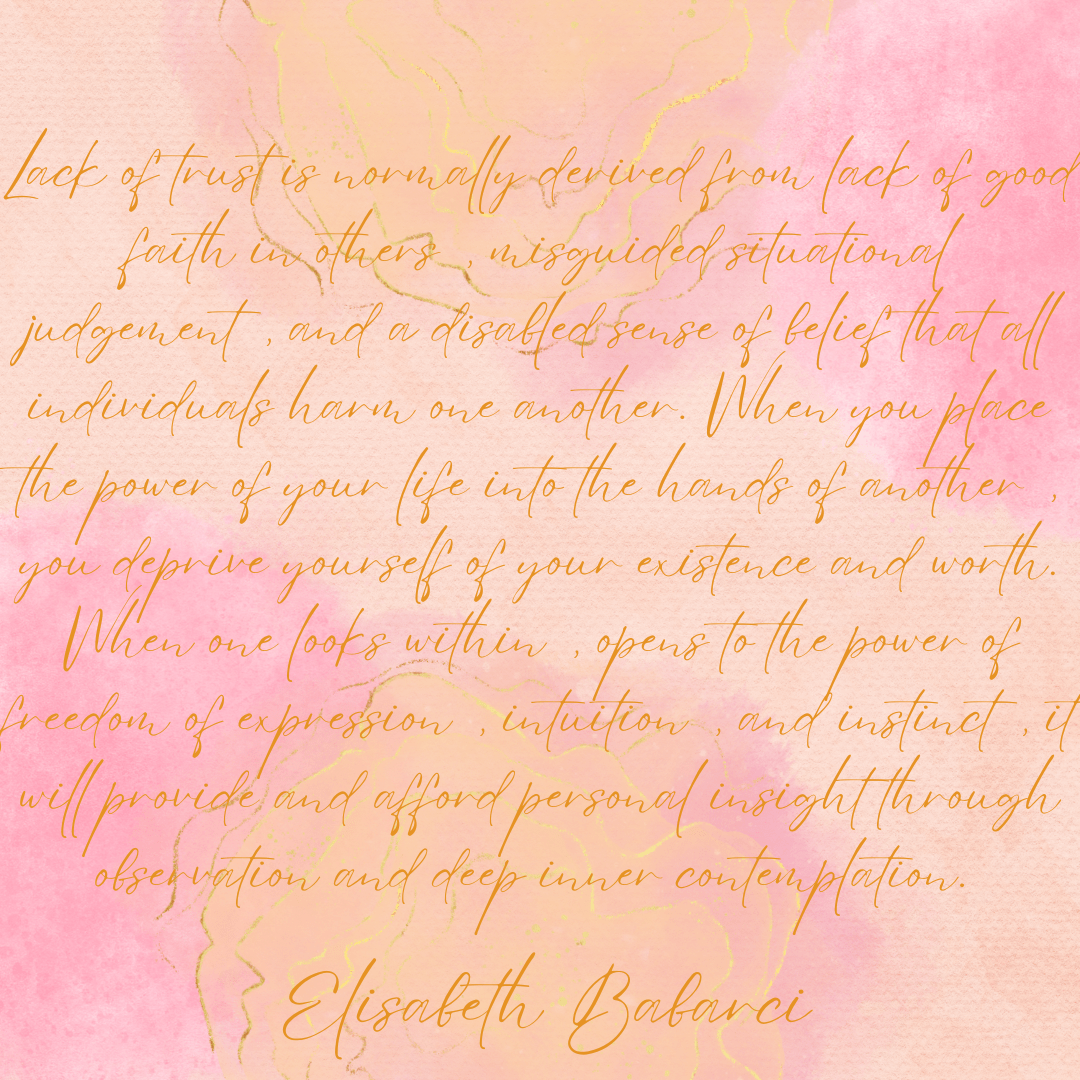 Lack of trust is normally derived from lack of good
faith in others , misguided situational
judgement , and a disabled sense of belief that all
individuals harm one another. When you place
the power of your life into the hands of another ,
you deprive yourself of your existence and worth.
When one looks within , opens to the power of
freedom of expression , intuition , and instinct , it
will provide and afford personal insight through
observation and deep inner contemplation.
Elisabeth Babarci